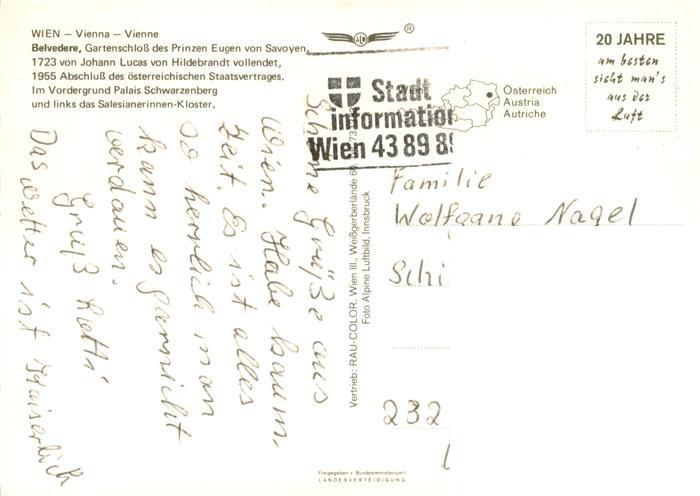 WIEN – Vienna – Vienne
Belvedere, Gartenschloß des Prinzen Eugen von Savoyen,
1723 von Johann Lucas von Hildebrandt vollendet,
1955 Abschluß des österreichischen Staatsvertrages.
Im Vordergrund Palais Schwarzenberg
und links das Salesianerinnen-Kloster.
®
Stadt
information
Wien 43 89 89
Österreich
Austria
Autriche
20 JAHRE
am besten
sieht man's
aus der
Luft
Schöne Grüße aus
Wien. Habe kaum
Zeit. Es ist alles
so herrlich man
kann es garnicht
verdauen.
Gruß
Das Wetter ist Kaiserlich
Vertrieb: RAU-COLOR, Wien III., Weißgerberlände
Foto Alpine Luftbild, Innsbruck
Familie
Wolfgang Nagel
Schi
232
Freigegeben v. Bundesministerium f.
LANDESVERTEIDIGUNG